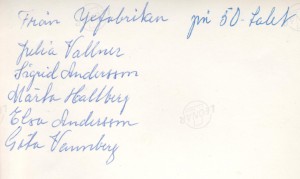 Från Yefabriken på 50-talet
Julia Vallner
Sigrid Andersson
Märta Hallberg
Elsa Andersson
Göta Vannberg